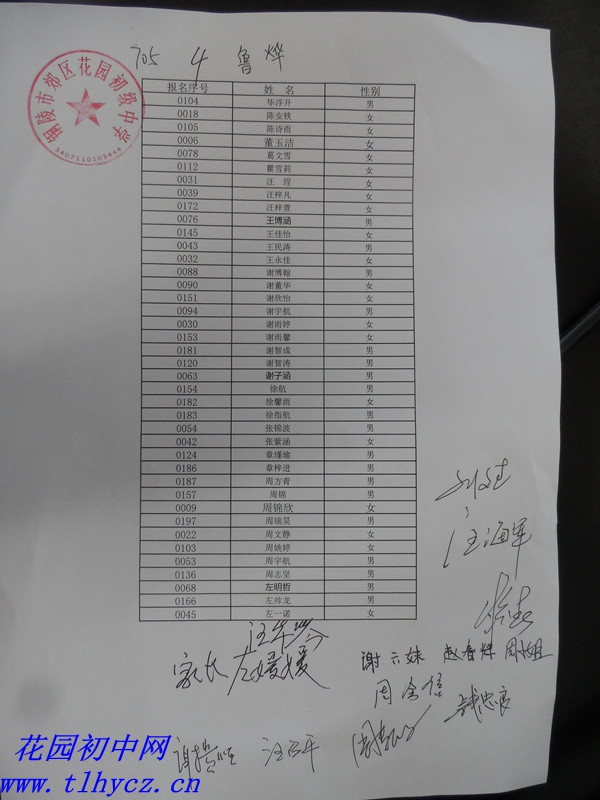 705 4 鲁烨
铜陵市郊区花园初级中学
3407110103444
报名序号 姓 名 性别
0104 毕浮升 男
0018 陈安轶 女
0105 陈诗雨 女
0006 董玉洁 女
0078 葛文雪 女
0112 瞿雪莉 女
0031 汪 理 女
0039 汪梓凡 女
0172 汪梓萱 女
0076 王博涵 男
0145 王佳怡 女
0043 王民涛 男
0032 王永佳 女
0088 谢博翰 男
0090 谢董华 女
0151 谢欣怡 女
0094 谢宇航 男
0030 谢雨婷 女
0153 谢雨馨 女
0181 谢智成 男
0120 谢智涛 男
0063 谢子涵 男
0154 徐航 男
0182 徐馨雨 女
0183 徐指航 男
0054 张锦波 男
0042 张紫涵 女
0124 章瑾瑜 男
0186 章梓进 男
0187 周方青 男
0157 周锦 男
0009 周锦欣 女
0197 周瑞昊 男
0022 周文静 女
0103 周姚婷 女
0053 周宇航 男
0136 周志坚 男
0068 左明哲 男
0166 左帅龙 男
0045 左一诺 女
汪海军
家长 左媛媛
谢六妹 赵春辉 周小姐
周金信
钱忠良
花园初中网
www.tlhycz.cn